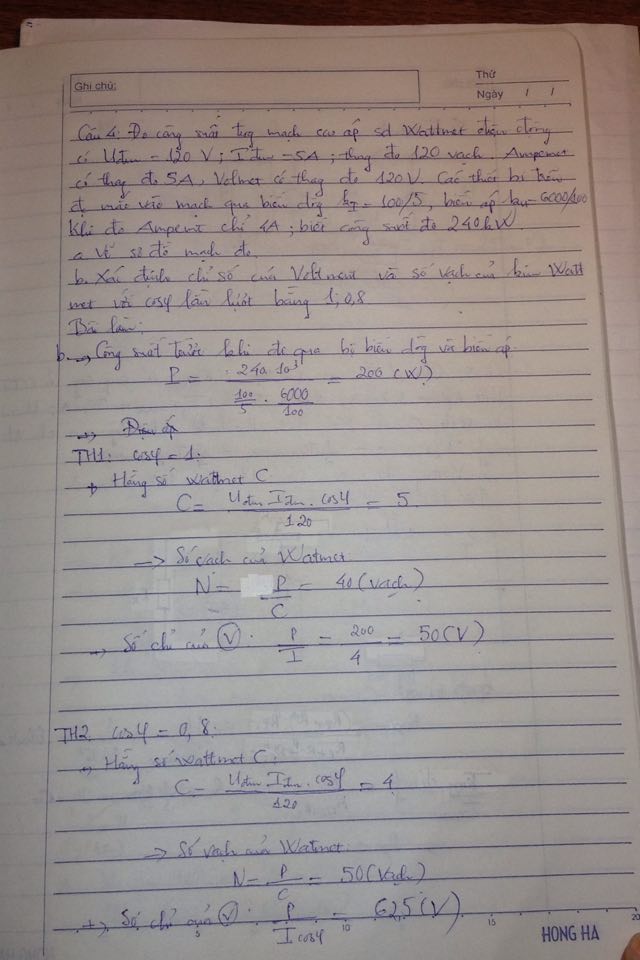 Ghi chú:
Thứ
Ngày / /
Câu 4: Đo công suất từng mạch cao áp sd Wattmet điện động
có Uđm = 120 V; Iđm = 5A; thang đo 120 vạch. Ampemet
có thang đo 5A, Volmet có thang đo 120V. Các thiết bị trên
đc mắc vào mạch qua biến dòng kI = 100/5, biến áp ku = 6000/100
Khi đo Ampemt chỉ 4A; biết công suất đo 240kW
a. Vẽ sơ đồ mạch đo.
b. Xác định chỉ số của Voltmet và số vạch của kim Watt
met với cosφ lần lượt bằng 1; 0,8
Bài làm:
b. → Công suất trước khi đo qua bộ biến dòng và biến áp
P = 240.10³ / (100/5 . 6000/100) = 200 (W)
→ Điện áp
TH1: cosφ = 1:
+ Hằng số Wattmet C
C = Uđm Iđm . cosφ / 120 = 5
→ Số vạch của Watmet
N = P/C = 40 (vạch)
→ Số chỉ của (V): P/I = 200/4 = 50 (V)
TH2. cosφ = 0,8:
→ Hằng số wattmet C:
C = Uđm Iđm . cosφ / 120 = 4
→ Số vạch của Watmet:
N = P/C = 50 (vạch)
+, Số chỉ của (V): P / I cosφ = 62,5 (V)
5 10 15 20
HONG HA